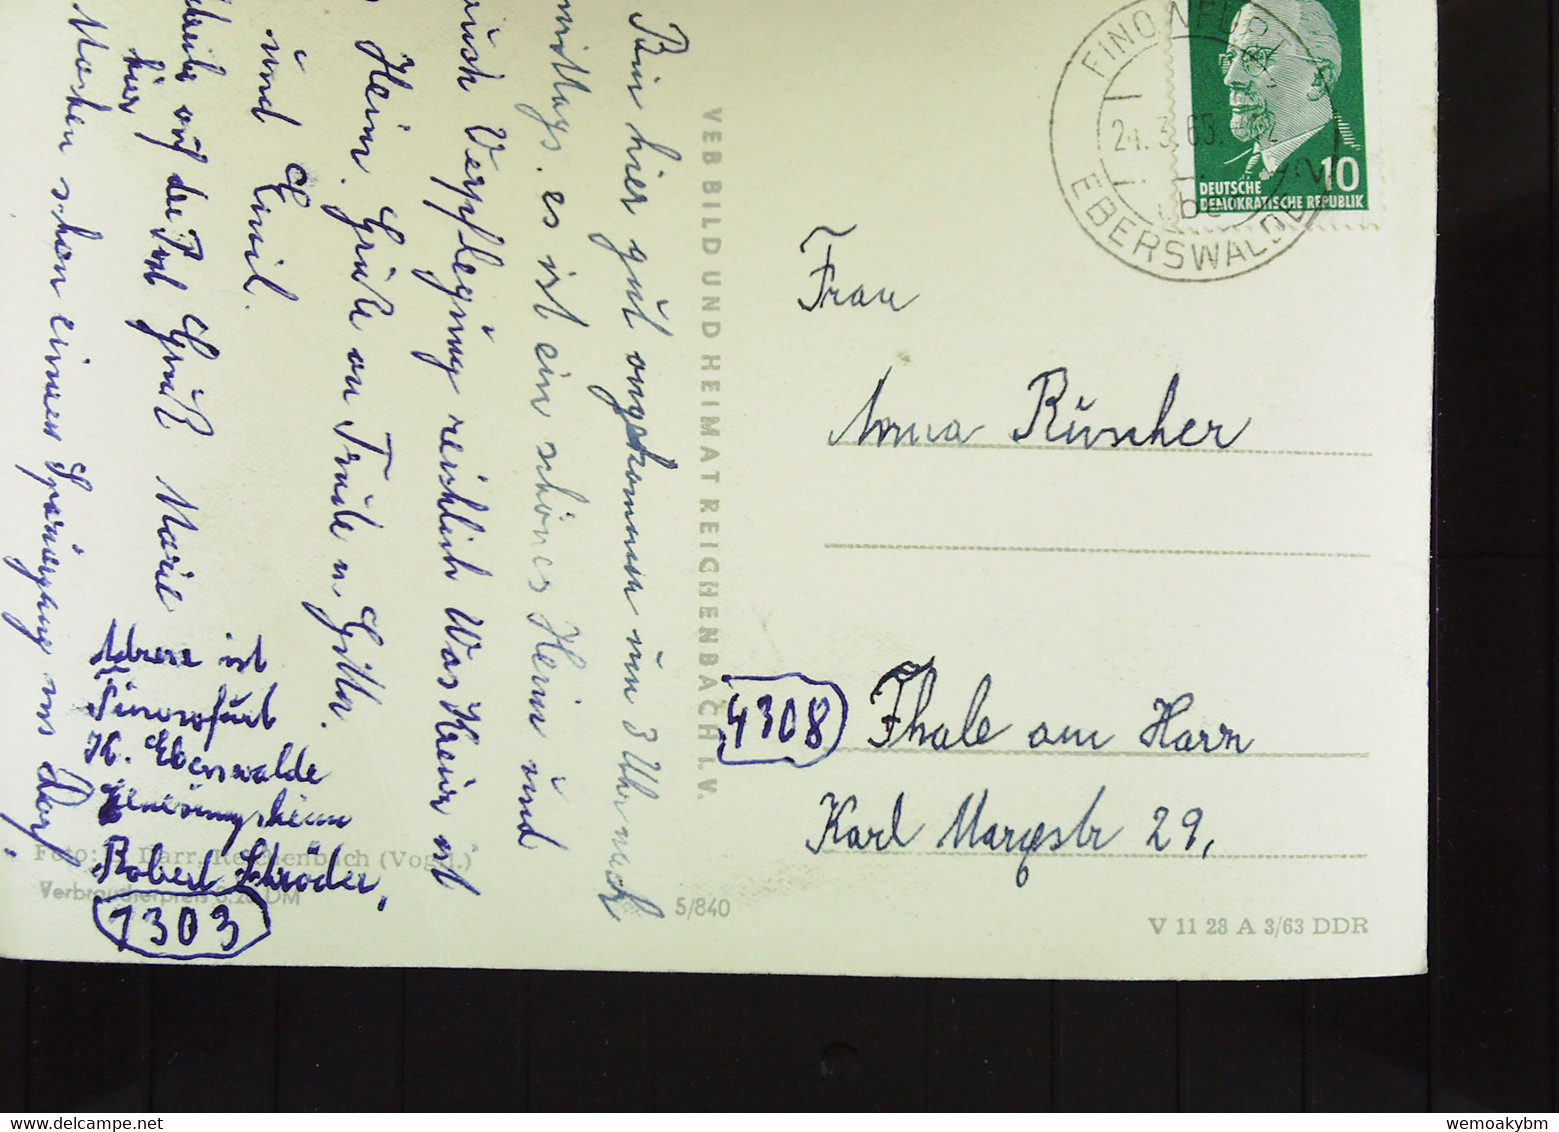 Bin hier gut angekommen um 3 Uhr nach
mittags. es ist ein schönes Heim und
auch Verpflegung reichlich Was Klein ist
Heim. Grüße an Trude u Gitta.
und Emil.
auf der Post Gruß Marie
hier
Machen schon einen Spaziergang ins Dorf.
Adresse ist
Finowfurt
Kr. Eberswalde
Genesungsheim
Robert Schröder,
1303
VEB BILD UND HEIMAT REICHENBACH I.V.
FINOWFURT
24.3.65
EBERSWALDE
10
DEUTSCHE
DEMOKRATISCHE REPUBLIK
Frau
Anna Rüscher
4308 Thale am Harz
Karl Marxstr 29,
Foto: Darr, Reichenbach (Vogtl.)
Verbraucherpreis 0.20 DM
5/840
V 11 28 A 3/63 DDR
wemoakybm